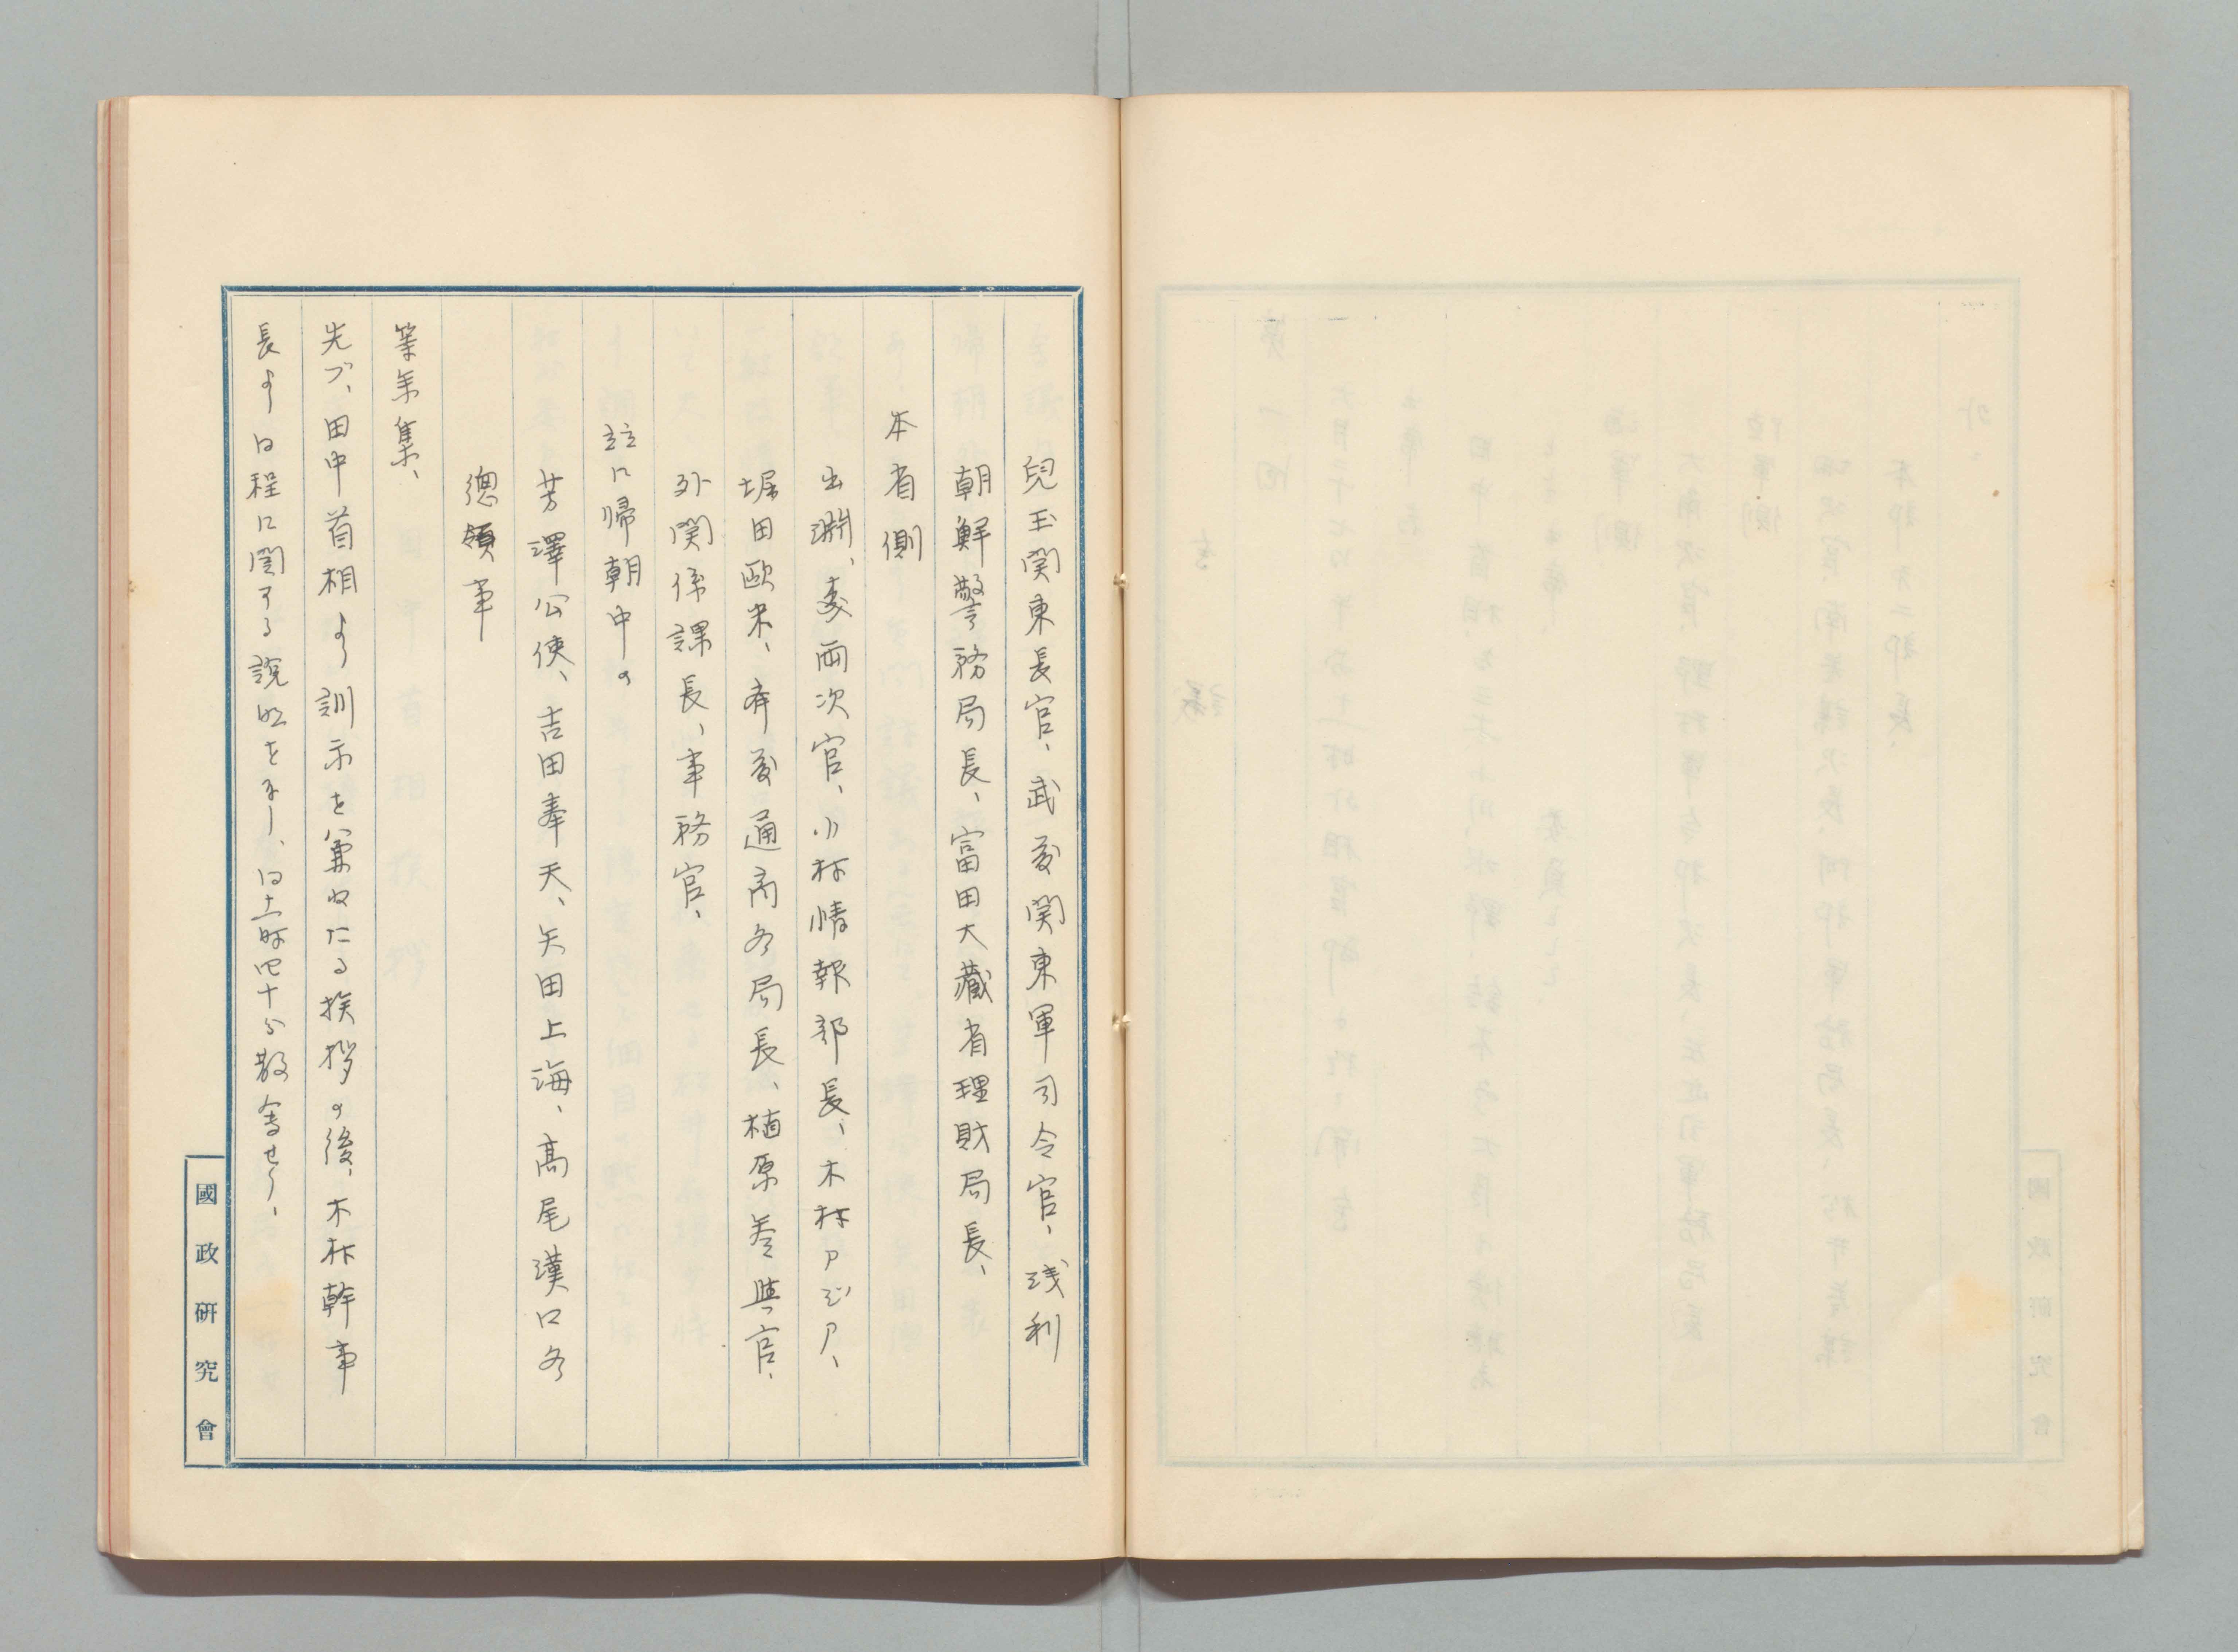 兒玉関東長官、武藤関東軍司令官、浅利
朝鮮警務局長、富田大藏省理財局長、
本省側
出淵、森両次官、小村情報部長、木村アジア、
堀田欧米、斎藤通商各局長、植原参與官、
外関係課長、事務官、
竝に帰朝中の
芳澤公使、吉田奉天、矢田上海、高尾漢口各
總領事
等参集、
先づ、田中首相より訓示を兼ねたる挨拶の後、木村幹事
長より日程に関する説明をなし、同十一時四十分散会せり、
國政研究會